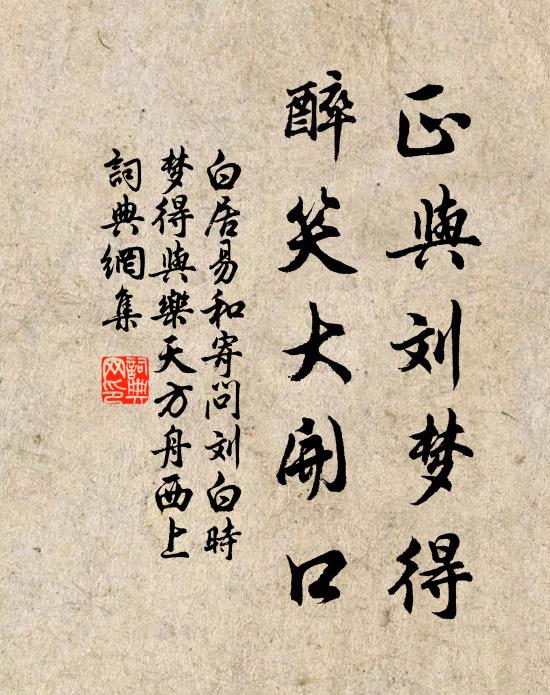 正與刘梦得
醉笑大開口
白居易和寄问刘白時
梦得與樂天方舟西上
詞典網集
詞典
网印